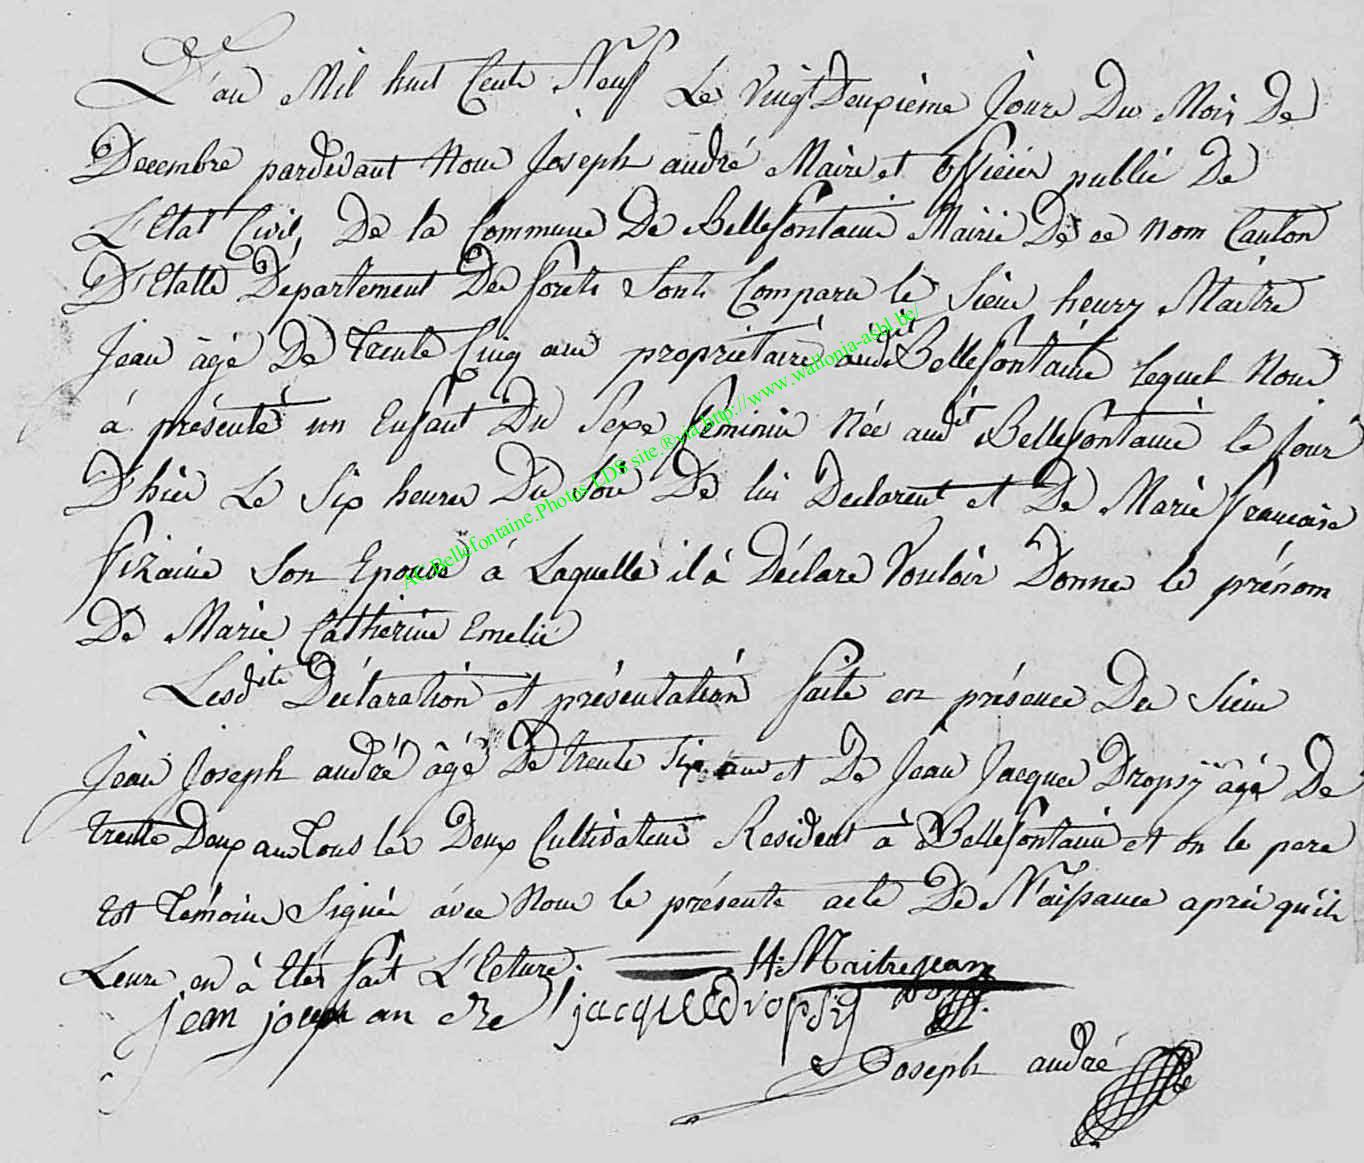 L'an Mil huit Cents Neuf Le Vingt Deuxième Jour Du Mois De
Decembre pardevant Nous Joseph andré Maire et officier public De
L'Etat Civil, De la Commune De Bellefontaine Mairie De ce Nom Canton
D'Etalle Département Des forêts Sont Comparu le Sieur henry Maitre
Jean âgé De trente Cinq ans propriétaire audit Bellefontaine Lequel Nous
à présenté un Enfant Du Sexe feminin Née audit Bellefontaine le Jour
D'hier Le Six heures Du Soir De lui Declarent et De Marie françoise
fizaine Son Epouse à Laquelle il à Déclare Vouloir Donner le prénom
De Marie Catherine Emelie
Lesdite Déclaration et présentation faite en présence Des Sieur
Jean Joseph andré âgé De trente Six ans et De Jean Jacques Dropsy âgé De
trente Deux ans Tous les Deux Cultivateur Resident à Bellefontaine et on le pere
Est Témoins Signés avec Nous le présente acte De Naissance après qu'ils
Leurs en à Etes fait L'Ecture. H: Maitrejean
jean joseph an dre jacque dropsy
Joseph andré
AC.Bellefontaine.Photos LDS site.®via http://www.wallonia-asbl.be/